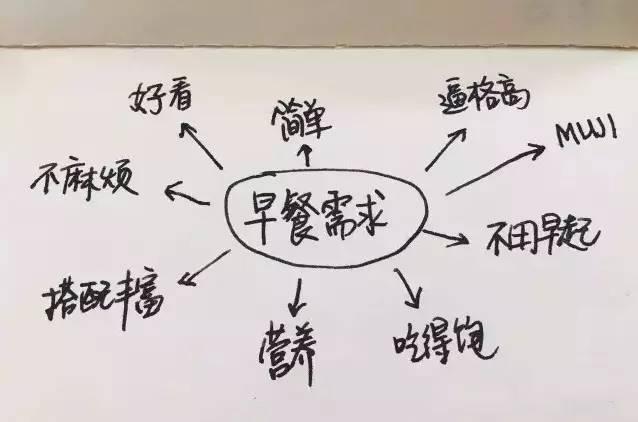 好看
简单
逼格高
MUJI
不麻烦
早餐需求
不用早起
搭配丰富
营养
吃得饱